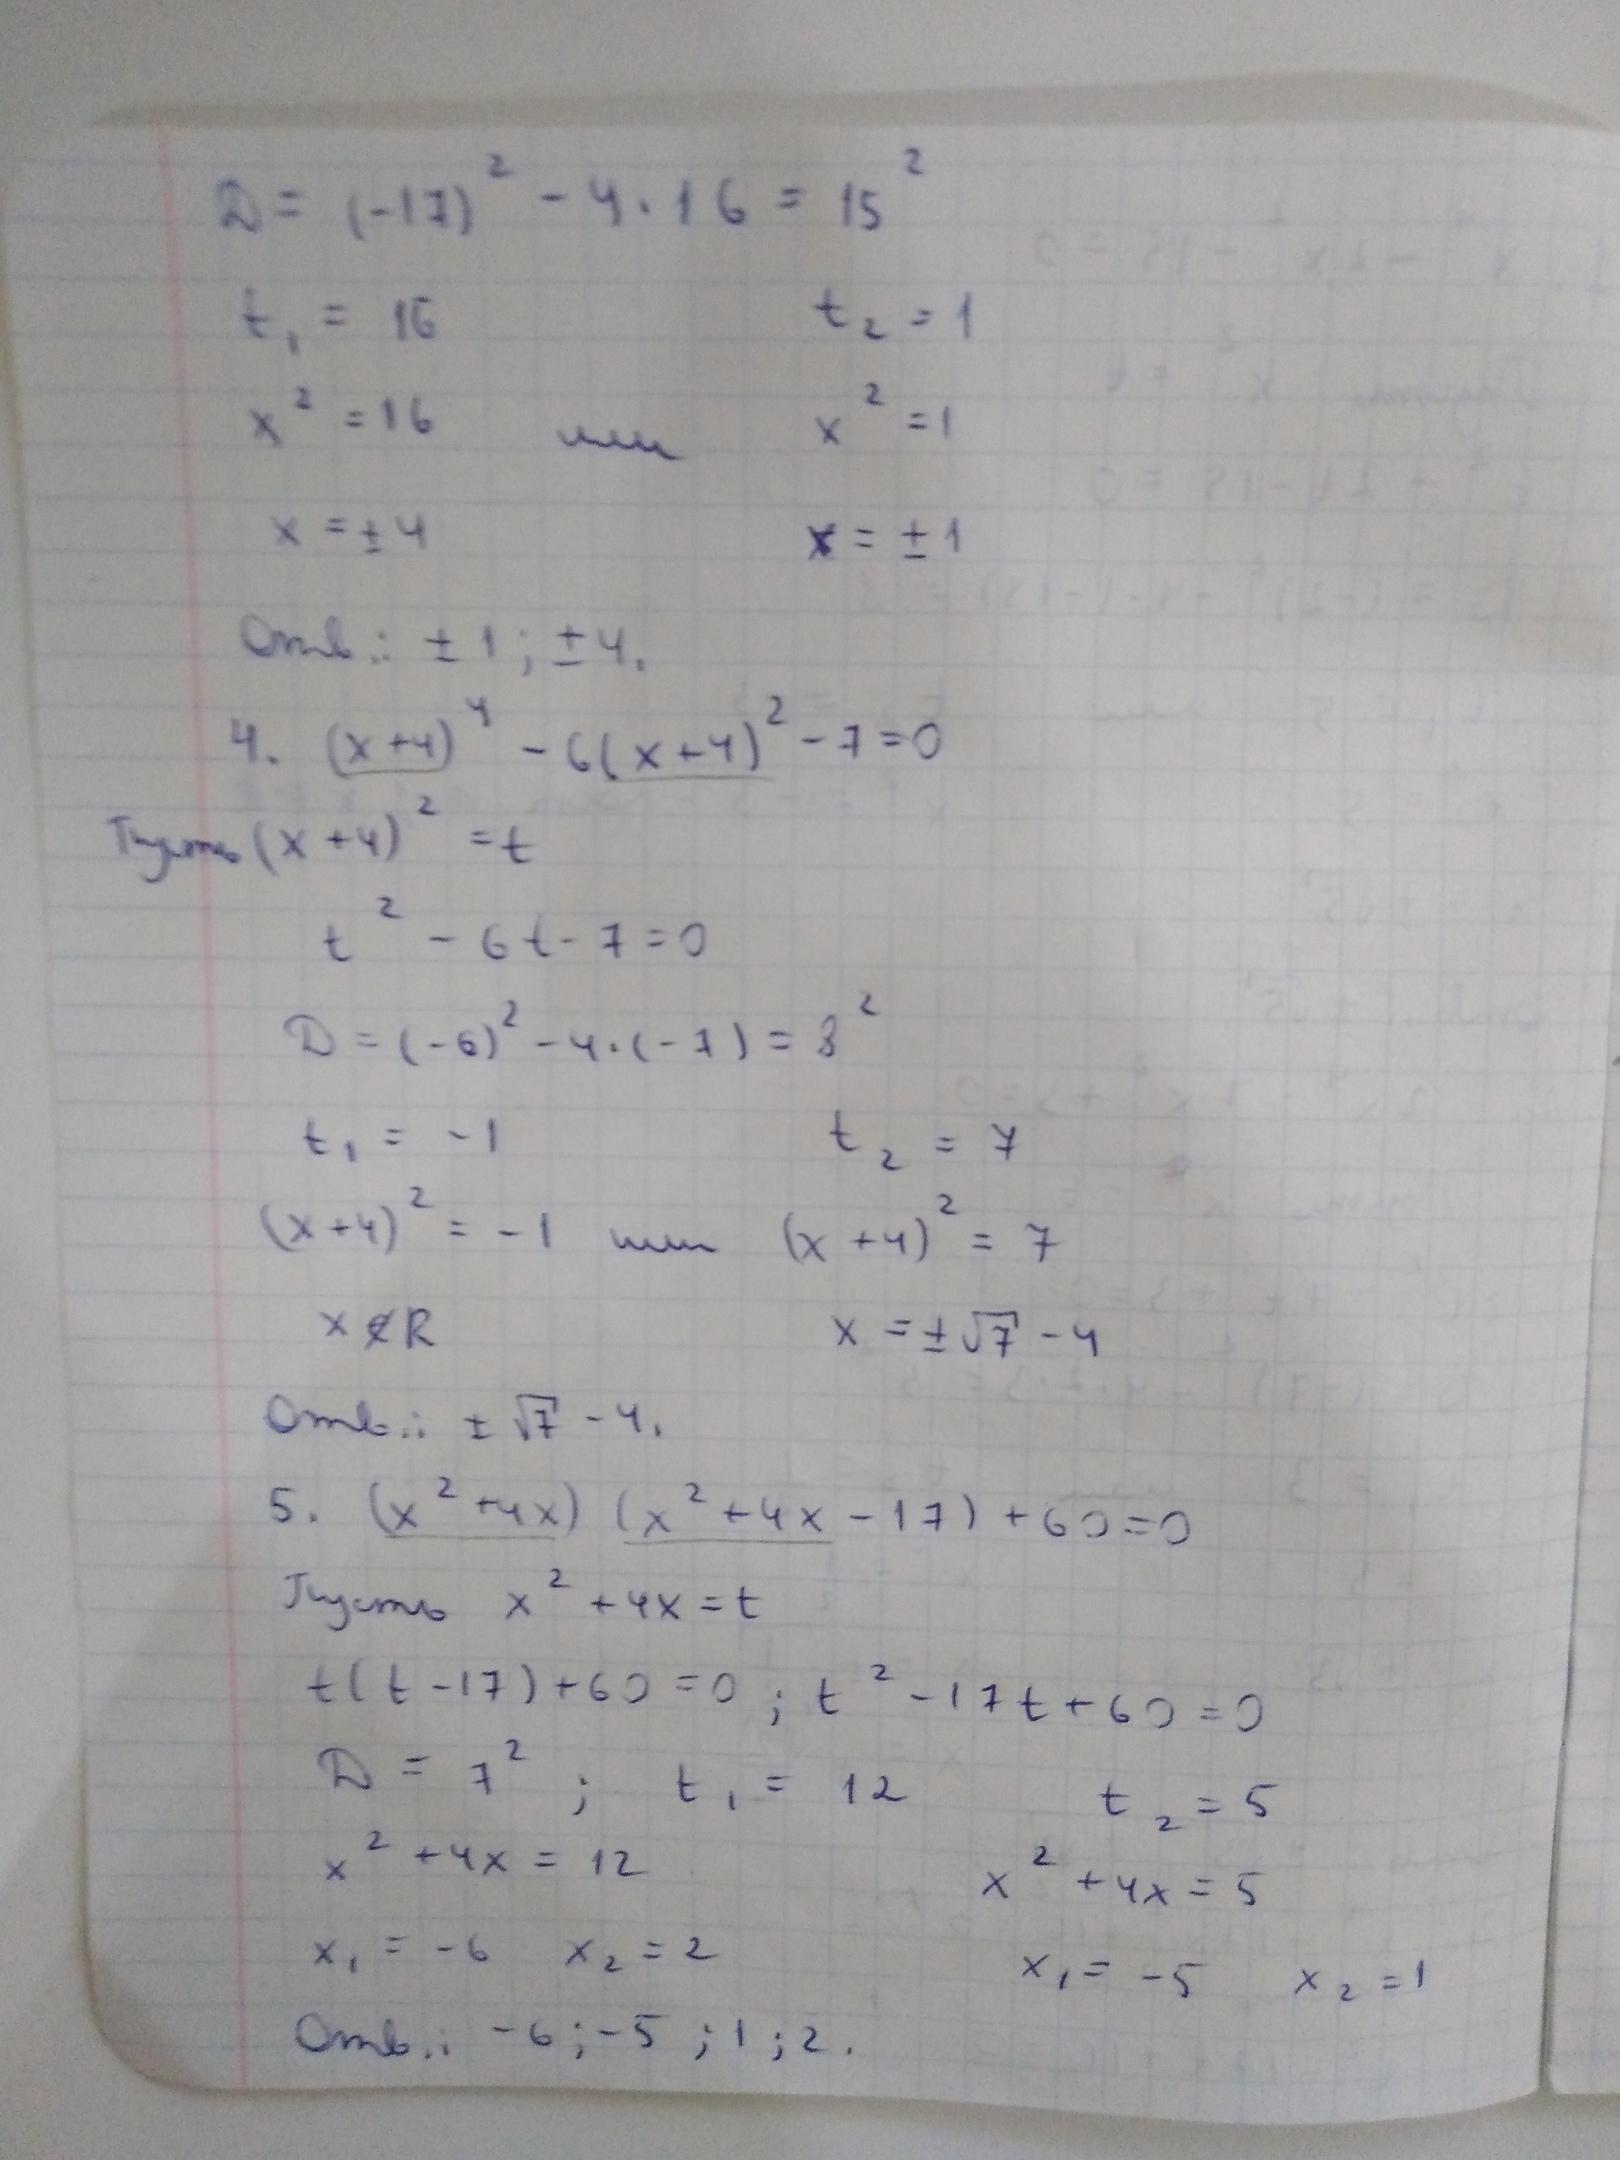 D = (-17)² - 4·16 = 15²
t₁ = 16 t₂ = 1
x² = 16 или x² = 1
x = ± 4 x = ± 1
Отв.: ± 1 ; ± 4.
4. (x+4)⁴ - 6(x+4)² - 7 = 0
Пусть (x+4)² = t
t² - 6t - 7 = 0
D = (-6)² - 4·(-7) = 8²
t₁ = -1 t₂ = 7
(x+4)² = -1 или (x+4)² = 7
x ∉ R x = ±√7 - 4
Отв.: ±√7 - 4.
5. (x²+4x) (x²+4x-17) + 60 = 0
Пусть x² + 4x = t
t(t-17)+60 = 0 ; t² - 17t + 60 = 0
D = 7² ; t₁ = 12 t₂ = 5
x² + 4x = 12 x² + 4x = 5
x₁ = -6 x₂ = 2 x₁ = -5 x₂ = 1
Отв.: -6 ; -5 ; 1 ; 2.